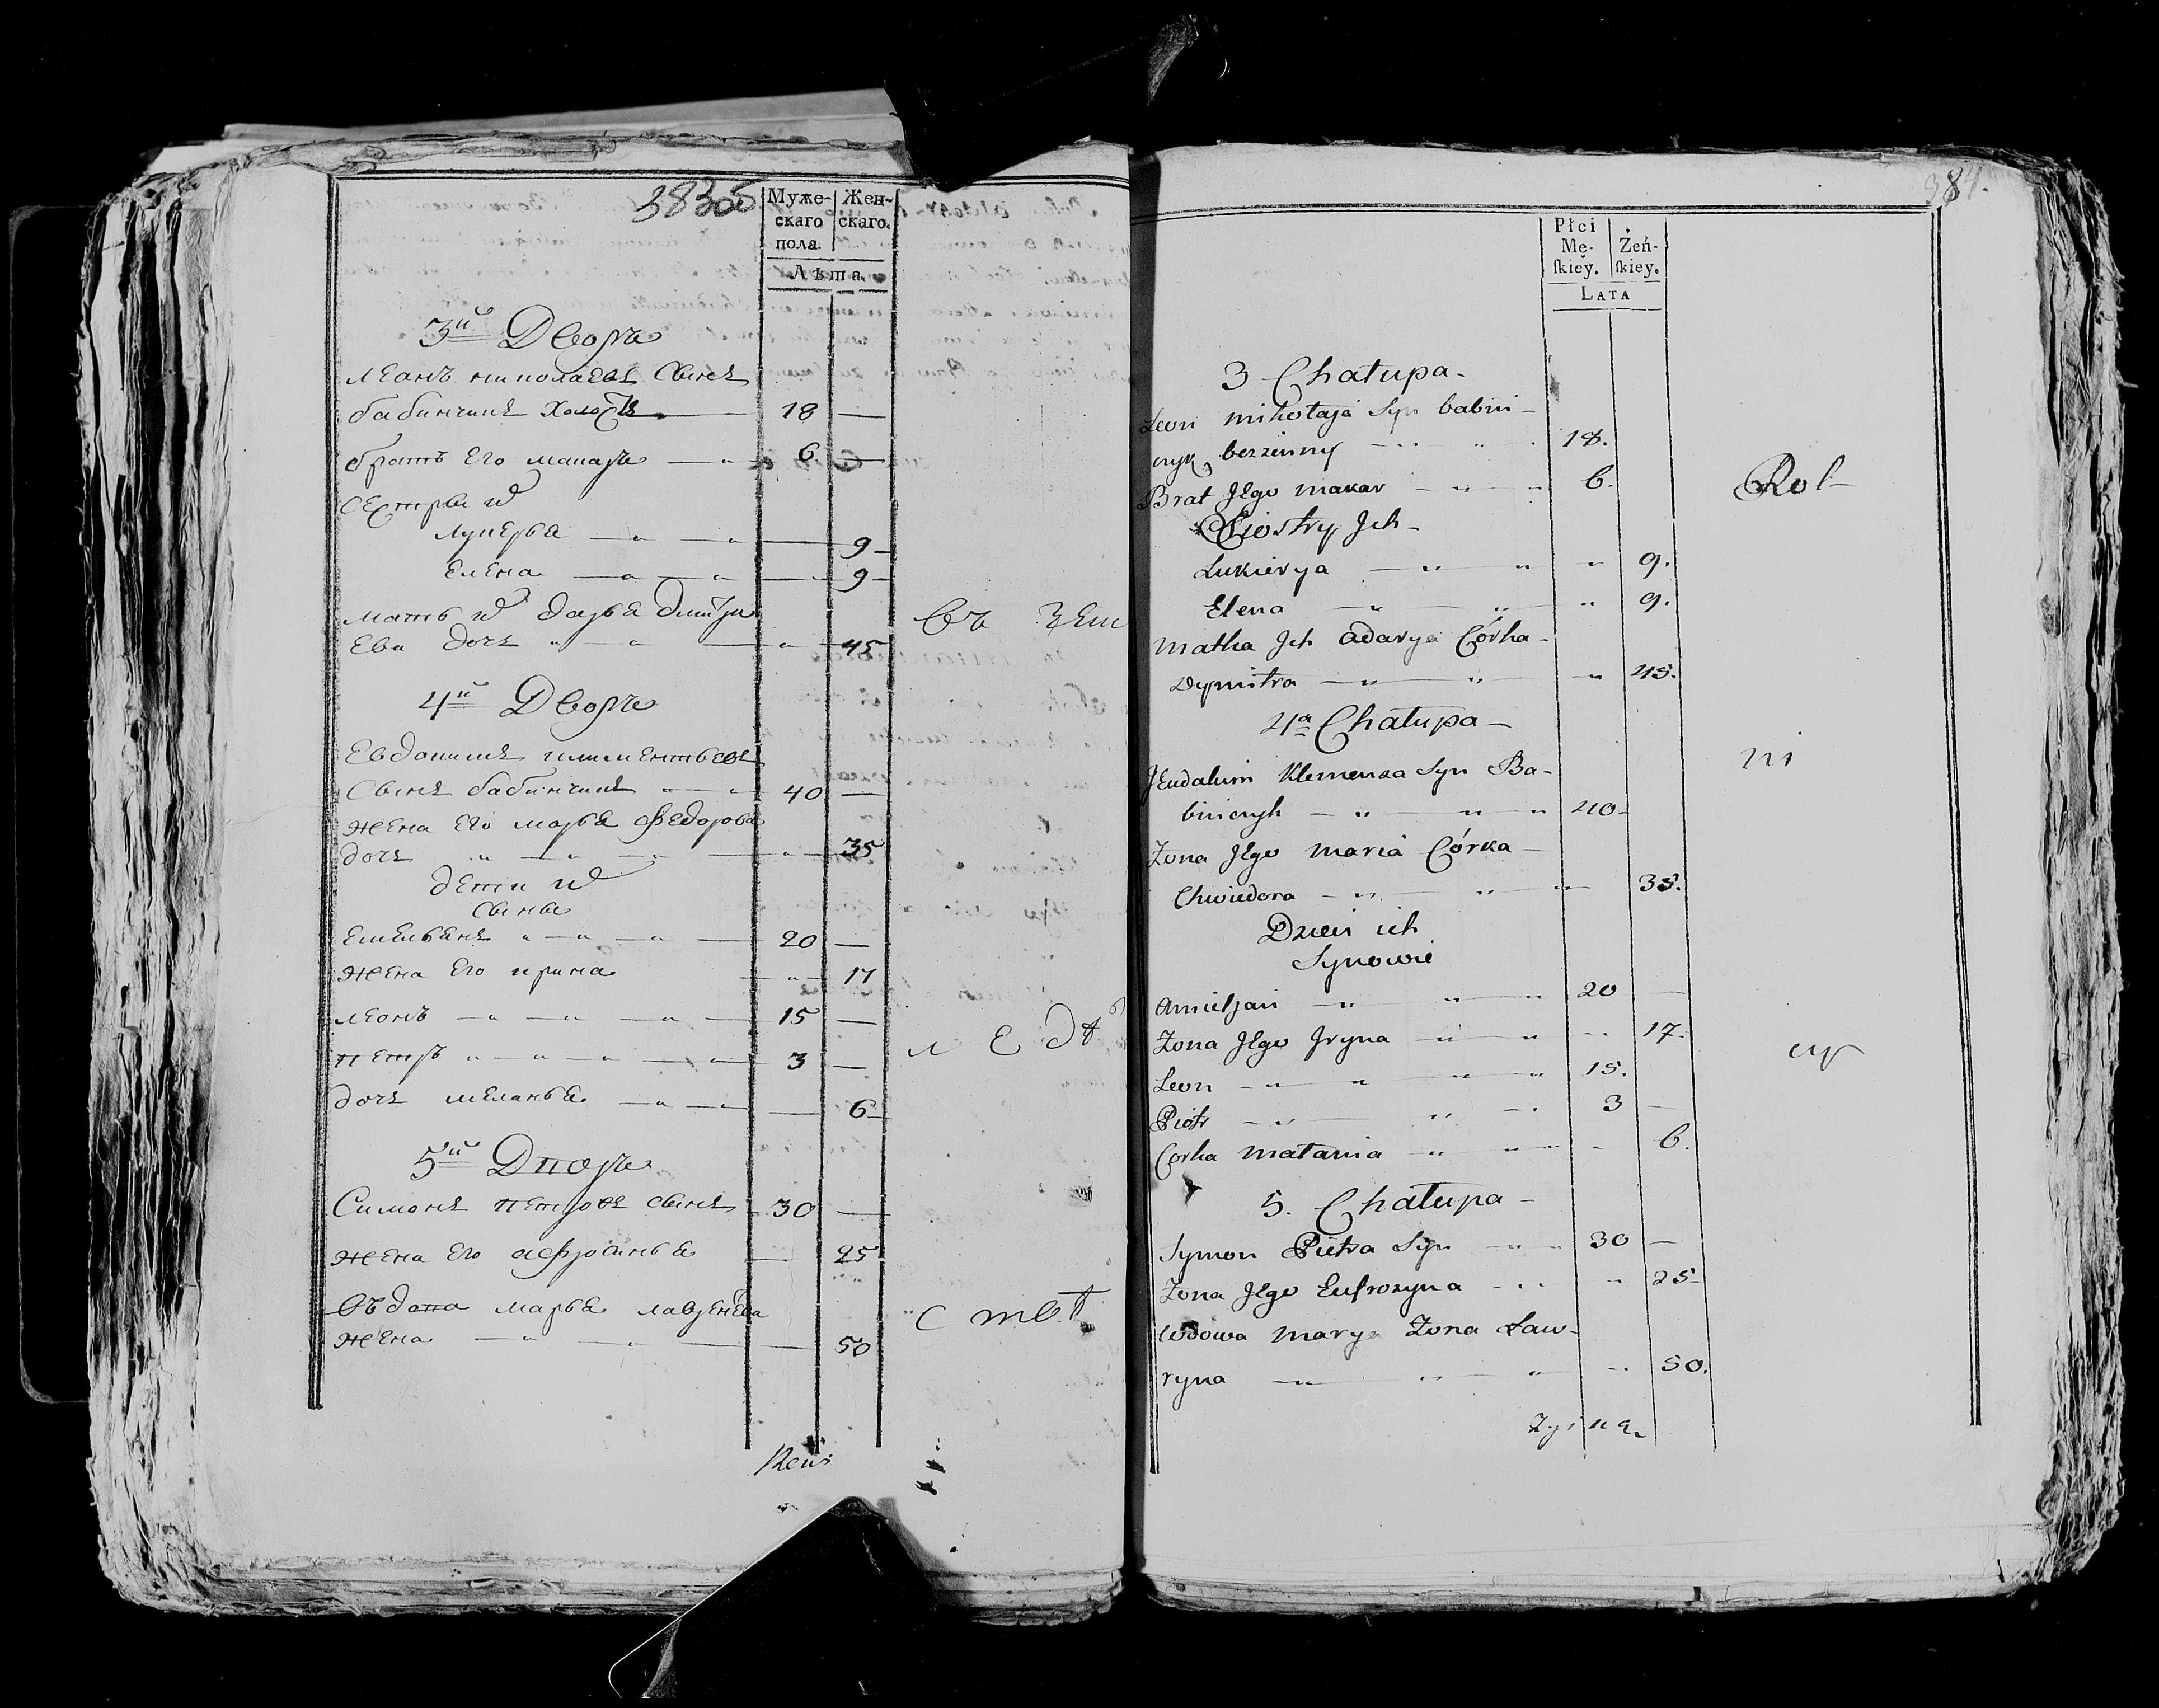 Муже-
скаго
пола.
Жен-
скаго.
Лѣта.
3й Дворъ
Леонъ николаевъ Сынъ
бабинчикъ холостъ 18 —
братъ Его макаръ — 6 —
сестры их
лукерья — 9 —
Елена — 9 —
мать их дарья дмитри
Ева дочь — 45
въ Зем
4й Дворъ
Евдокимъ климентьевъ
Сынъ бабинчикъ — 40 —
жена Его марья федорова
дочь — 35
дети их
сыны
Емельянъ — 20 —
жена Его ирина — 17
леонъ — 15 —
петръ — 3 —
дочь меланья — 6
л е дѣ
5й Дворъ
Симонъ петровъ сынъ 30 —
жена Его афросинья — 25
Въдова марья лавреньева
жена — 50
с твѣ
384.
Płci
Mę-
ſkiey.
Żeń-
ſkiey.
Lata
3 Chałupa -
Leon mikołaja Syn babini-
czyk bezżenny — 18.
Brat Jego makar — 6.
Siostry Jch -
Łukierya — 9.
Elena — 9.
matka Jch adarya Córka -
Dymitra — 45.
Rol-
4a Chałupa -
JEudakim Klemensa Syn Ba-
biniczyk — 40 -
Żona Jego maria Córka -
Chwiedora — 35.
Dzieci ich
Synowie
Amieljan — 20 —
Żona Jego Jryna — 17.
Leon — 15.
Piotr — 3 —
Corka małania — 6.
ni
cy
5. Chałupa -
Symon Pietra Syn — 30 —
Żona Jego Eufrozyna — 25-
Wdowa marya Żona Ław-
ryna — 50.